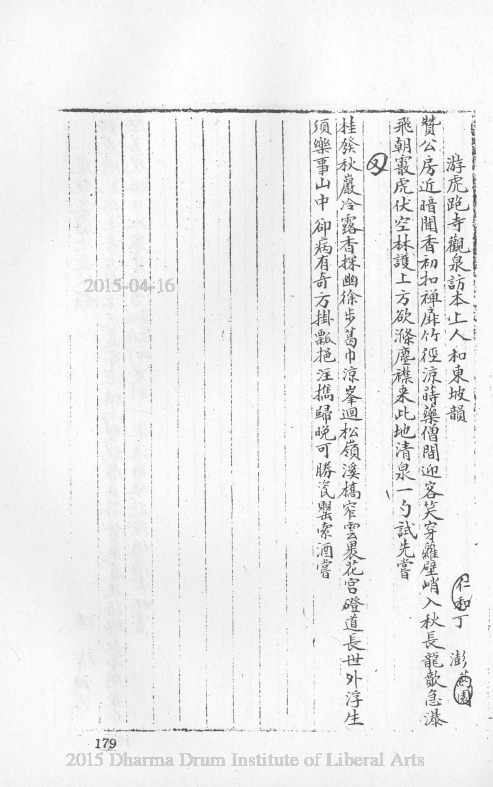 游虎跑寺觀泉訪本上人和東坡韻
仁和丁 澎葯園
贊公房近暗聞香初扣禪扉竹徑涼蒔藥僧閒迎客笑穿蘿壁峭入秋長龍歕急瀑
飛朝靄虎伏空林護上方欲滌塵襟来此地清泉一勺試先嘗
又
桂發秋巖冷露香探幽徐步葛巾涼峯迴松嶺溪橋窄雲裹花宮磴道長世外浮生
須樂事山中卻病有奇方掛瓢挹注攜歸晚可勝瓷甖索酒嘗
2015-04-16
179
2015 Dharma Drum Institute of Liberal Arts